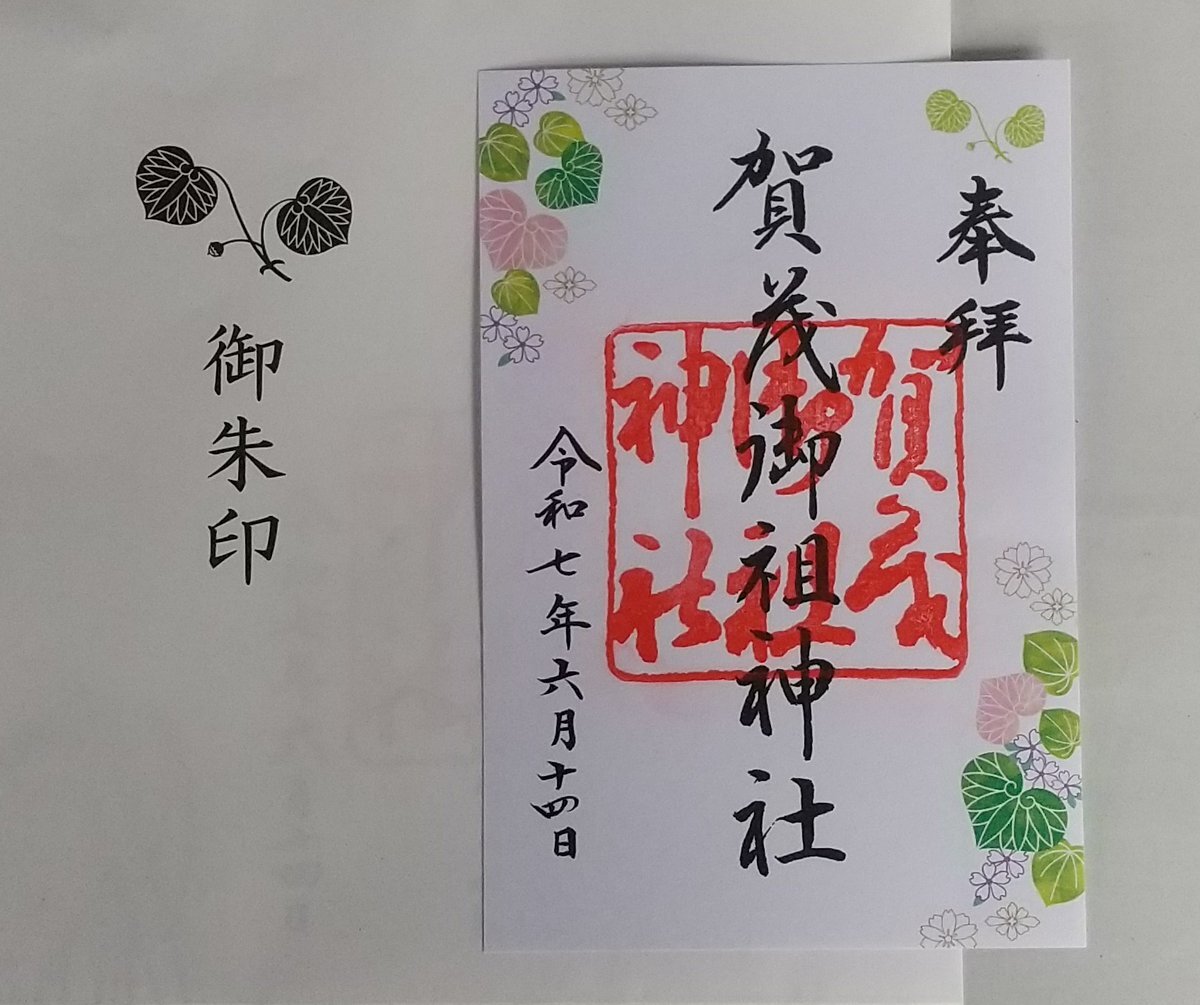 奉拝
賀茂御祖神社
賀茂
御祖
神社
令和七年六月十四日
御朱印